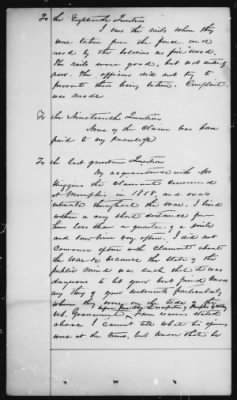 To the Eighteenth Question
I saw the rails when they
were taken from the fence and
used by the soldiers as fire wood.
The rails were good, but not entirely
new. The officers did not try to
prevent their being taken. Complaint
was made
To the Nineteenth Question
None of the claim has been
paid to my knowledge
To the last question
My acquaintance with Mr
Higgins the claimant commenced
at Memphis in 1858, and was
intimate throughout the war. I lived
within a very short distance from
him less than a quarter of a mile
and saw him very often. I did not
converse often with claimant about
the war because the state of the
public mind was such that it was
dangerous to let your best friend know
any thing of your sentiments particularly
when they were on the side of the
U.S. Government
before Memphis
For reasons stated
above I cannot tell what his opinions
were at the time, but know that he